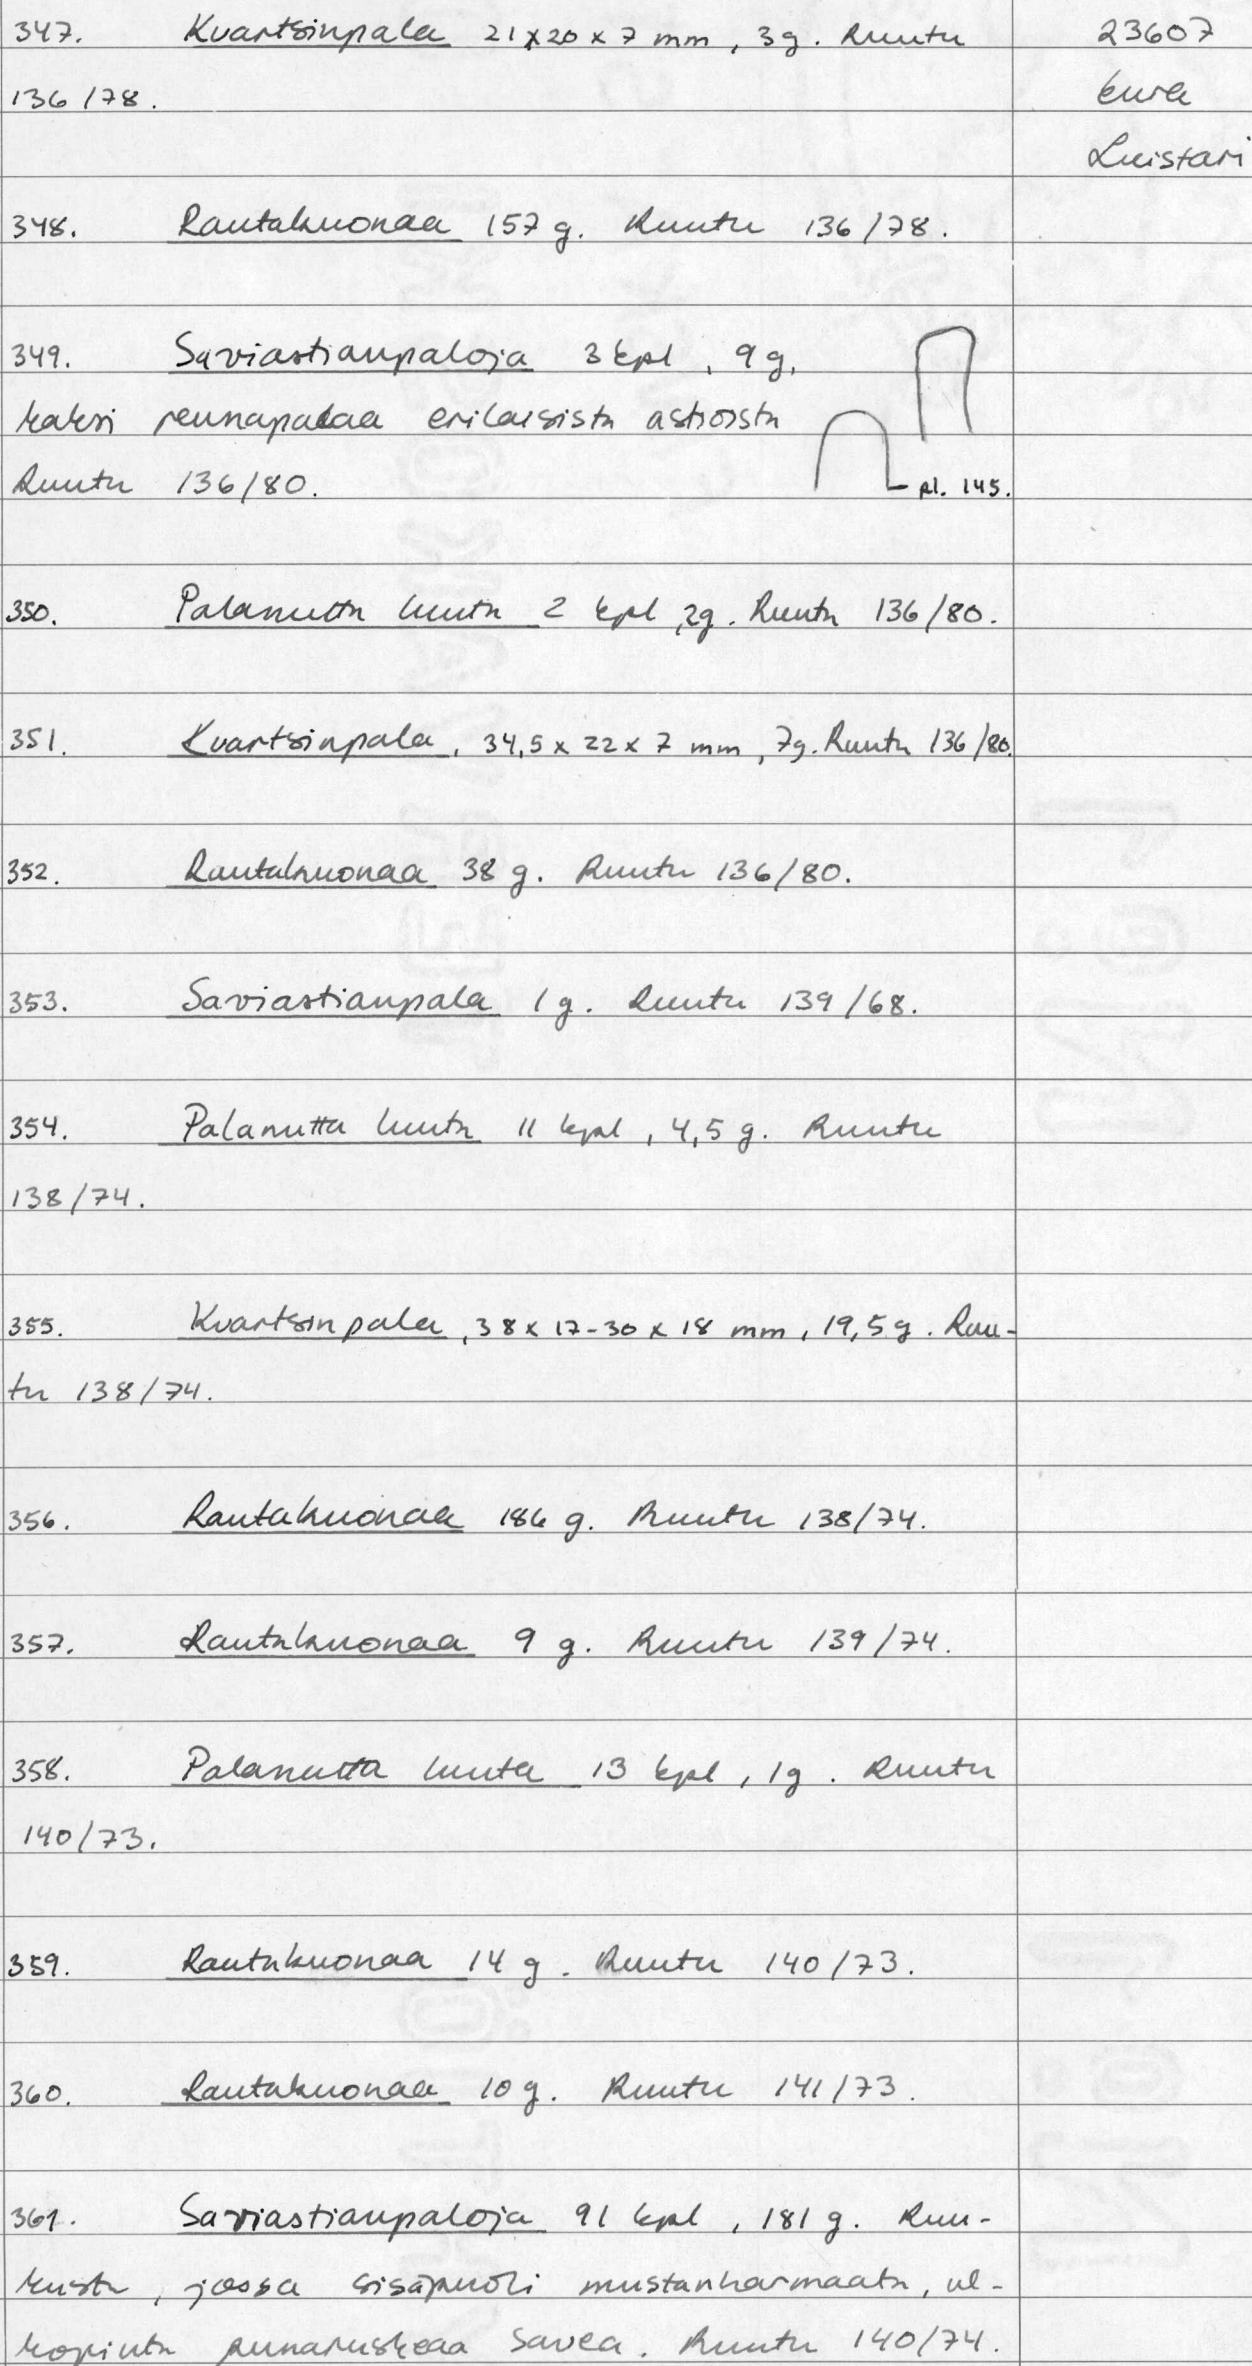 347. Kvartsinpala 21x20x7 mm, 3g. Ruutu
136/78.
23607
Eura
Luistari
348. Rautakuonaa 157 g. Ruutu 136/78.
349. Saviastianpaloja 3 kpl, 9 g,
kaksi reunapalaa erilaisista astioista
Ruutu 136/80.
pl. 145.
350. Palanutta luuta 2 kpl, 2g. Ruutu 136/80.
351. Kvartsinpala, 34,5 x 22 x 7 mm, 7g. Ruutu 136/80.
352. Rautakuonaa 38 g. Ruutu 136/80.
353. Saviastianpala 1 g. Ruutu 139/68.
354. Palanutta luuta 11 kpl, 4,5 g. Ruutu
138/74.
355. Kvartsinpala, 38 x 17-30 x 18 mm, 19,5 g. Ruu-
tu 138/74.
356. Rautakuonaa 186 g. Ruutu 138/74.
357. Rautakuonaa 9 g. Ruutu 139/74.
358. Palanutta luuta 13 kpl, 1g. Ruutu
140/73.
359. Rautakuonaa 14 g. Ruutu 140/73.
360. Rautakuonaa 10 g. Ruutu 141/73.
361. Saviastianpaloja 91 kpl, 181 g. Ruu-
kusta, jossa sisäpuoli mustanharmaata, ul-
kopinta punaruskeaa savea. Ruutu 140/74.